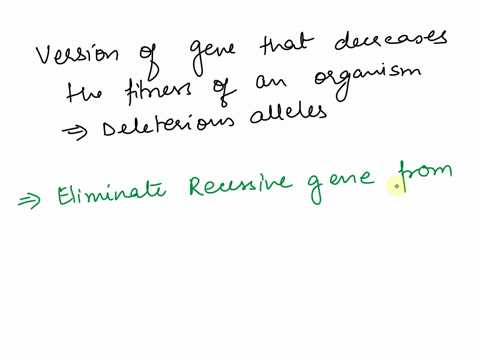 Version of gene that decreases
the fitness of an organism
⇒ Deleterious alleles
⇒ Eliminate Recessive gene from